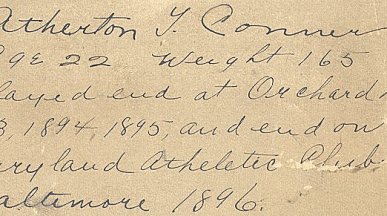 Atherton T. Conner
age 22 Weight 165
layed end at Orchard
3, 1894, 1895, and end on
aryland Atheletic Club
altimore 1896.